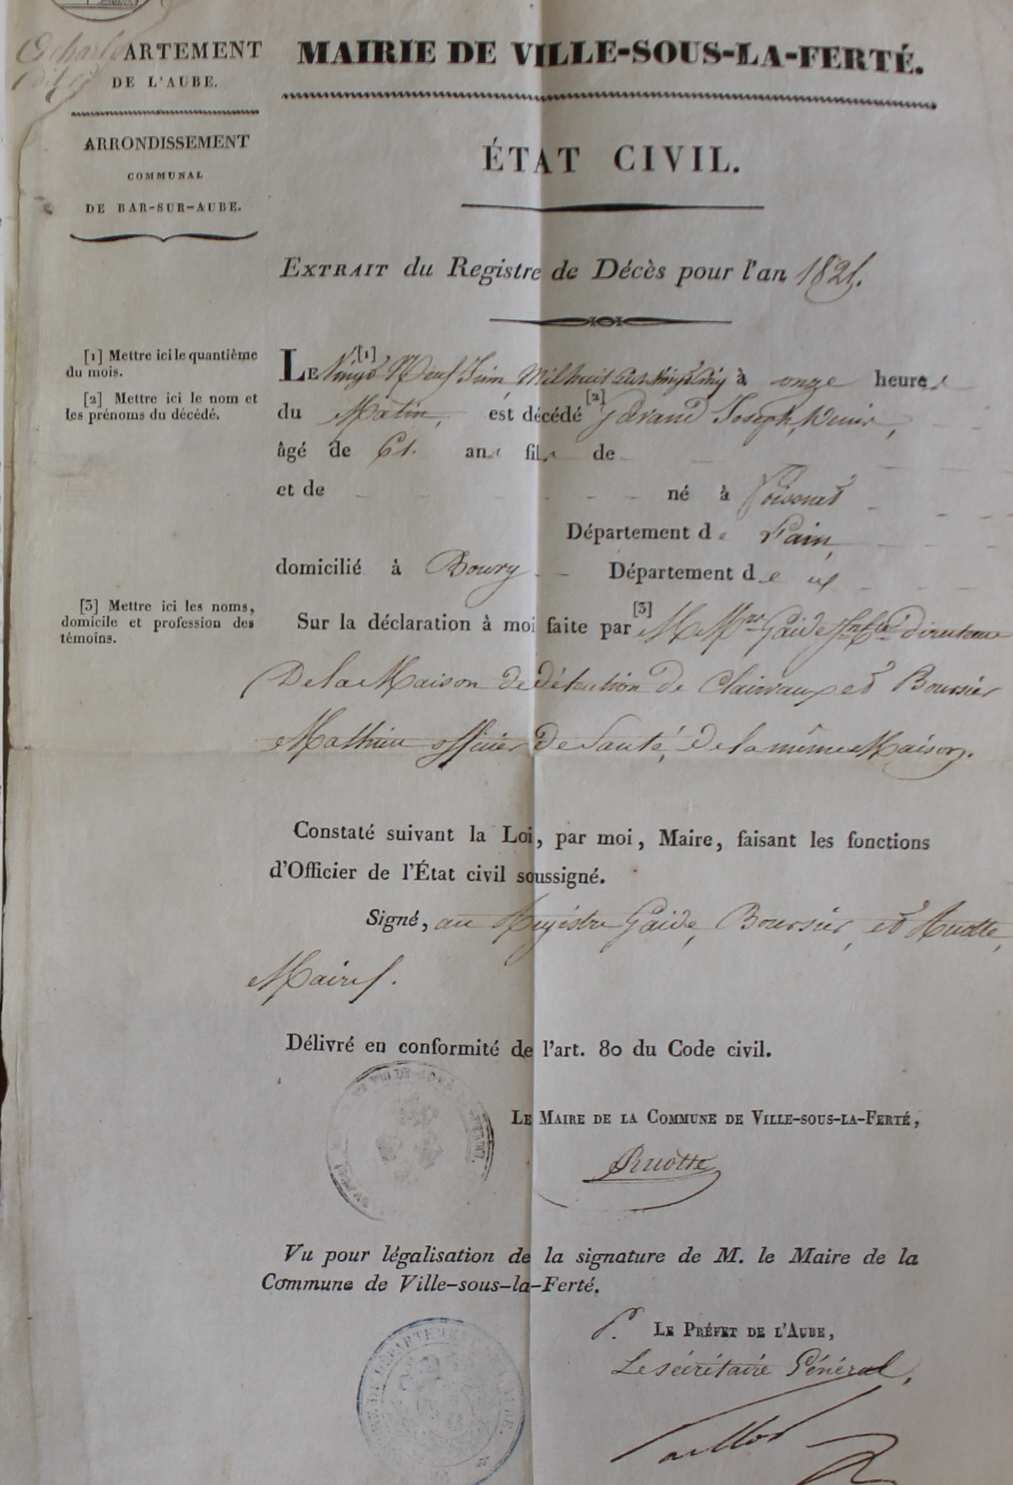 ARTEMENT
DE L'AUBE.
ARRONDISSEMENT
COMMUNAL
DE BAR-SUR-AUBE.
MAIRIE DE VILLE-SOUS-LA-FERTÉ.
ÉTAT CIVIL.
EXTRAIT du Registre de Décès pour l'an 182
[1] Mettre ici le quantième
du mois.
[2] Mettre ici le nom et
les prénoms du décédé.
LE [1] Vingt Neuf Juin Mil huit cent à onze heure
du Matin, est décédé [2] Joseph
âgé de 61. an fil de
et de né à
Département d
domicilié à Bourg Département d
[3] Mettre ici les noms,
domicile et profession des
témoins.
Sur la déclaration à moi faite par [3] M Gaide directeur
De la Maison de détention de Clairvaux et Boursier
Mathieu officier De Santé, De la même Maison.
Constaté suivant la Loi, par moi, Maire, faisant les fonctions
d'Officier de l'État civil soussigné.
Signé, au Régistre Gaide, Boursier, et Ruotte,
Maire.
Délivré en conformité de l'art. 80 du Code civil.
LE MAIRE DE LA COMMUNE DE VILLE-SOUS-LA-FERTÉ,
Ruotte
Vu pour légalisation de la signature de M. le Maire de la
Commune de Ville-sous-la-Ferté.
P. LE PRÉFET DE L'AUBE,
Le sécrétaire Général,